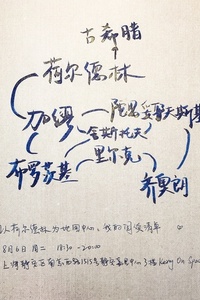 古希腊
荷尔德林
加缪 陀思妥耶夫斯基
舍斯托夫
布罗茨基 里尔克 齐奥朗
以荷尔德林为地图中心,我的阅读
8月6日 周二 18:30-20:00
上海静安区南京西路1515号静安嘉里中心3楼 Kerry On Space